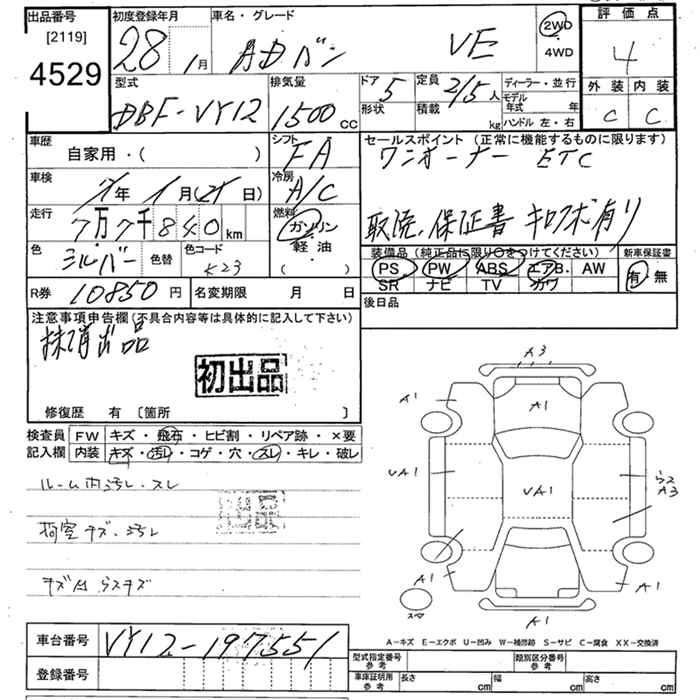 出品番号 [2119] 4529
初度登録年月 28 1月
車名・グレード ADバン VE
2WD 4WD
評価点 4
外装 C 内装 C
型式 DBF-VY12
排気量 1500 CC
ドア 5 形状
定員 2/5人 積載 kg
ディーラー・並行
モデル年式 年
ハンドル 左・右
車歴 自家用・( )
シフト FA
セールスポイント (正常に機能するものに限ります)
ワンオーナー ETC
取説、保証書 キロクボ有り
車検 年 1月 日)
冷房 A/C
走行 7万7千840km
燃料 ガソリン 軽油 ( )
色 シルバー 色替 色コード K23
装備品 (純正品に限り○をつけてください)
PS PW ABS エアB. AW
SR ナビ TV カワ
新車保証書 有 無
R券 10850円 名変期限 月 日
後日品
注意事項申告欄(不具合内容等は具体的に記入して下さい)
抹消出品
初出品
修復歴 有 [箇所 ]
検査員記入欄
FW キズ・飛石・ヒビ割・リペア跡・×要
内装 キズ・汚れ・コゲ・穴・スレ・キレ・破レ
ルーム内汚レ・スレ
荷室キズ・汚レ
A3
A1
A1
UA1
UA1
A3
A1
A1
A1
A-キズ E-エクボ U-凹み W-補修跡 S-サビ C-腐食 XX-交換済
車台番号 VY12-197551
登録番号
型式指定番号 参考
類別区分番号 参考
車庫証明用 参考 長さ cm 幅 cm 高さ cm